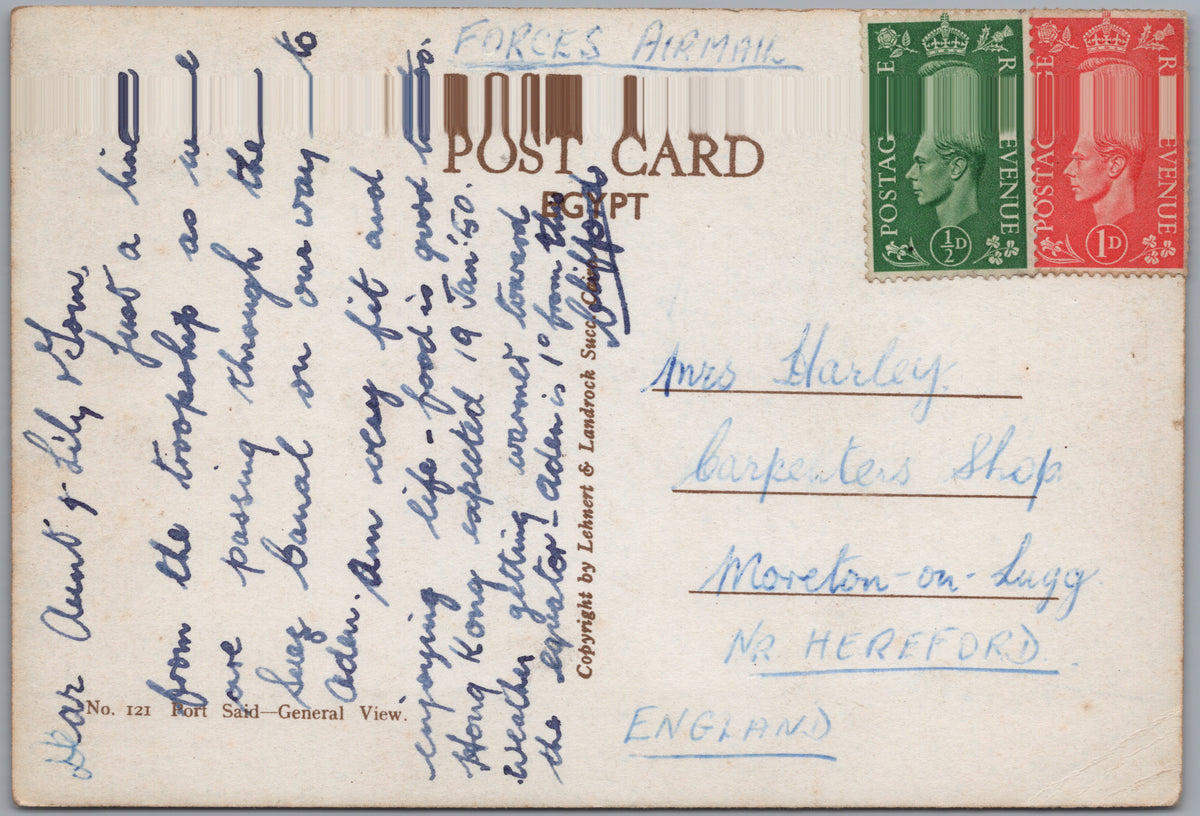 FORCES AIRMAIL
POST CARD
EGYPT
POSTAGE REVENUE
½D
POSTAGE REVENUE
1D
Dear Aunt & Lily & Tom,
Just a line
from the troopship as we
are passing through the
Suez Canal on our way to
Aden. Am very fit and
enjoying life - food is good too.
Hong Kong expected 19 Jan '50.
Weather getting warmer toward
the equator - Aden is 1° from the
Clifford
Copyright by Lehnert & Landrock Succ. Cairo
No. 121 Port Said—General View.
Mrs Harley
Carpenters Shop
Moreton-on-Lugg
NR. HEREFORD.
ENGLAND